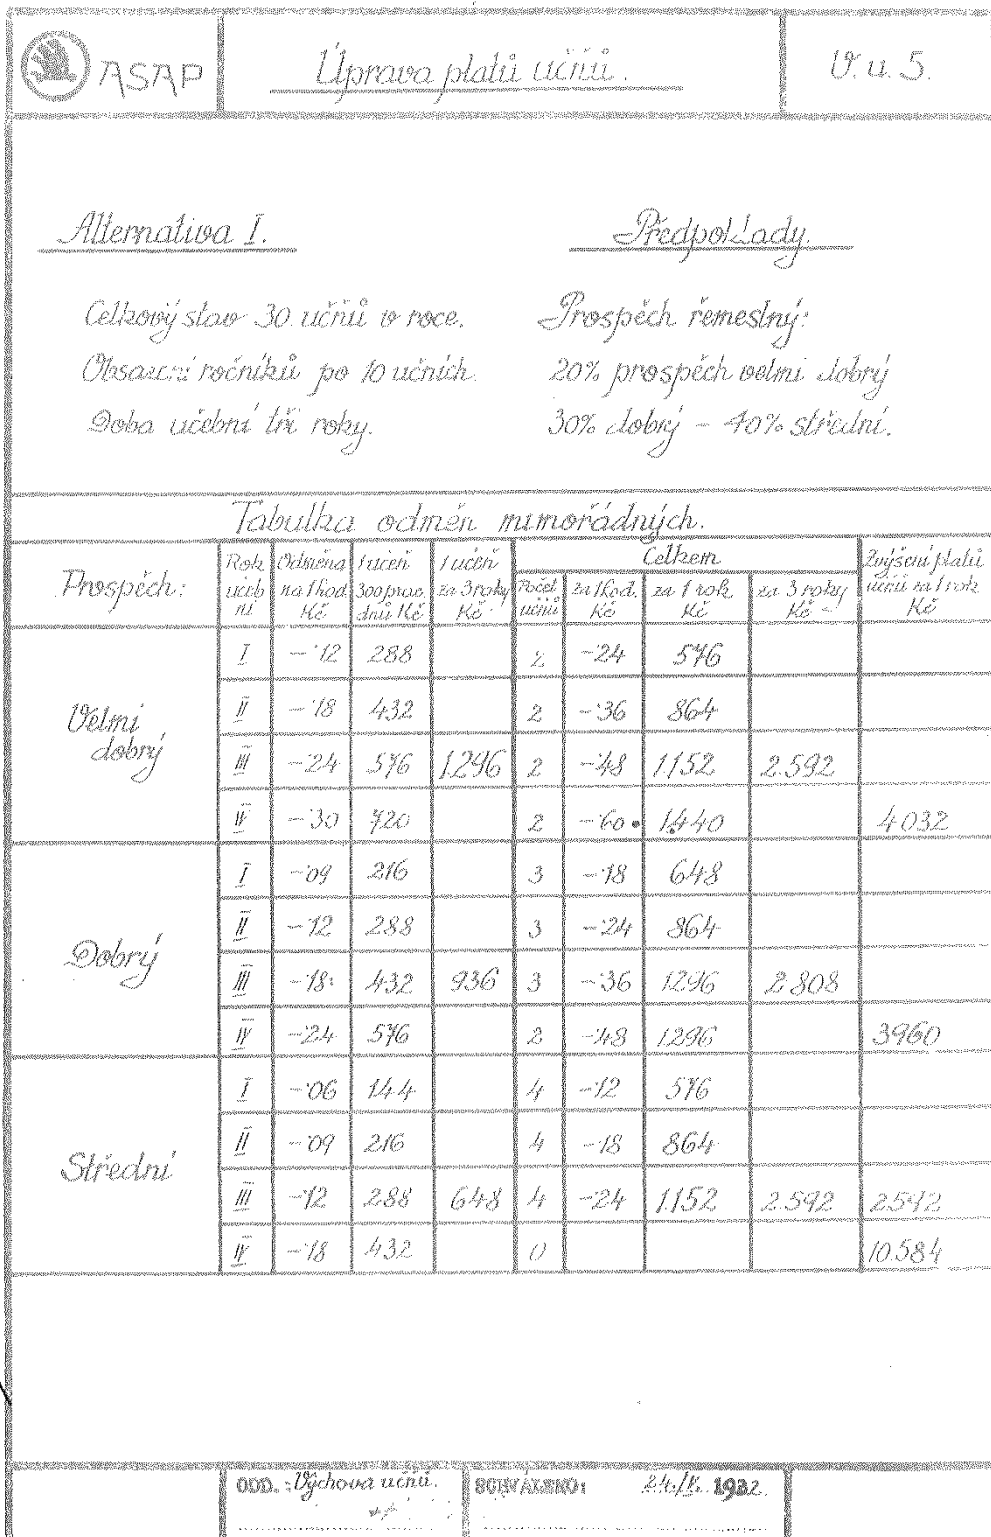 ASAP
Úprava platů učňů.
V. u. 5.
Alternativa I.
Předpoklady.
Celkový stav 30 učňů v roce.
Obsazení ročníků po 10 učních.
Doba učební tři roky.
Prospěch řemeslný:
20% prospěch velmi dobrý
30% dobrý - 40% střední.
Tabulka odměn mimořádných.
Prospěch: Rok učeb ní Odměna na 1 hod. Kč 1 učeň 300 prac. dnů Kč 1 učeň za 3 roky Kč Celkem Počet učňů za 1 hod. Kč za 1 rok Kč za 3 roky Kč Zvýšení platů učňů za 1 rok Kč
Velmi dobrý
I -·12 288 2 -·24 576
II -·18 432 2 -·36 864
III -·24 576 1.296 2 -·48 1.152 2.592
IV -·30 720 2 -·60 1.440 4.032
Dobrý
I -·09 216 3 -·18 648
II -·12 288 3 -·24 864
III -·18 432 936 3 -·36 1.296 2.808
IV -·24 576 2 -·48 1.296 3960
Střední
I -·06 144 4 -·12 576
II -·09 216 4 -·18 864
III -·12 288 648 4 -·24 1.152 2.592 2.592
IV -·18 432 0 10.584
ODD.: Výchova učňů.
SCHVÁLENO: 1932.